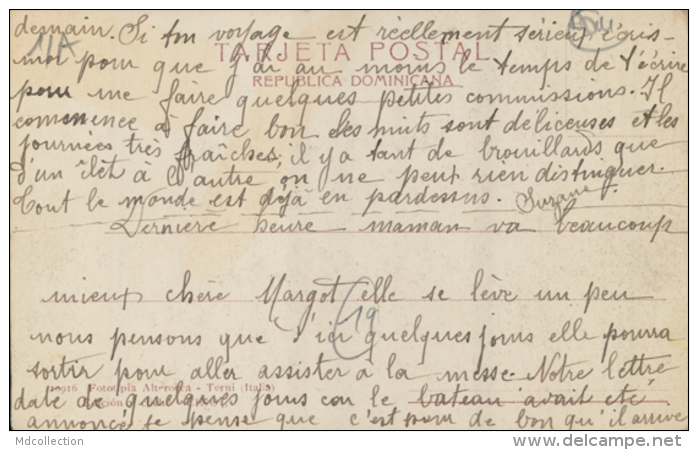 demain. Si ton voyage est réellement sérieux écris-
11A
TARJETA POSTAL
moi pour que j'ai au moins le temps de t'écrire
REPUBLICA DOMINICANA
pour me faire quelques petites commissions. Il
commence à faire bon les nuits sont délicieuses et les
journées très fraîches, il y a tant de brouillards que
d'un îlet à l'autre on ne peut rien distinguer.
Tout le monde est déjà en pardessus. Suzane
Dernière heure maman va beaucoup
mieux chère Margot elle se lève un peu
19
nous pensons que d'ici quelques jours elle pourra
sortir pour aller assister à la messe. Notre lettre
10916 Fototipia Alterocca - Terni (Italia)
date de quelques jours car le bateau avait été
annoncé je pense que c'est pour de bon qu'il arrive
Mdcollection
www.delcampe.net